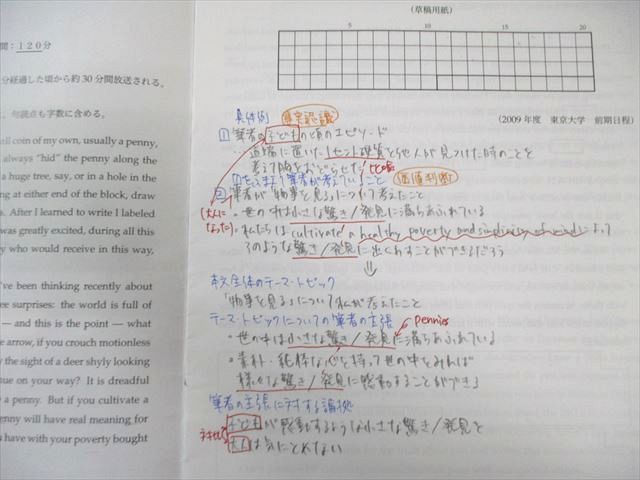 間：１２０分
分経過した頃から約30分間放送される。
、句読点も字数に含める。
ell coin of my own, usually a penny,
always "hid" the penny along the
a huge tree, say, or in a hole in the
ng at either end of the block, draw
s. After I learned to write I labeled
was greatly excited, during all this
y who would receive in this way,
've been thinking recently about
ee surprises: the world is full of
— and this is the point — what
e arrow, if you crouch motionless
y the sight of a deer shyly looking
nue on your way? It is dreadful
p a penny. But if you cultivate a
penny will have real meaning for
s have with your poverty bought
（草稿用紙）
5 10 15 20
（2009年度 東京大学 前期日程）
具体例 事実認識
1 筆者の子どもの頃のエピソード
道端に置いた1セント硬貨を他人が見つけた時のことを
考えて胸をおどらせた
1をふまえて筆者が考えていること 価値判断
2 筆者が「物事を見る」について考えたこと
(大人になった)
・世の中は小さな驚き/発見に満ちあふれている
・私たちは cultivate a healthy poverty and simplicity of mind によって
そのような驚き/発見に出くわすことができるだろう
⇓
本文全体のテーマ・トピック
「物事を見る」について私が考えたこと
テーマ・トピックについての筆者の主張
pennies
・世の中は小さな驚き/発見に満ちあふれている
・素朴・純粋な心を持って世の中をみれば
様々な驚き/発見に感動することができる
筆者の主張に対する論拠
子どもが感動するような小さな驚き/発見を
対比
大人は気にとめない